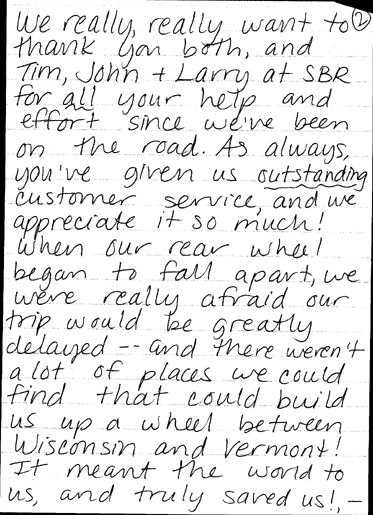 We really, really want to ②
thank you both, and
Tim, John + Larry at SBR
for all your help and
effort since we've been
on the road. As always,
you've given us outstanding
customer service, and we
appreciate it so much!
When our rear wheel
began to fall apart, we
were really afraid our
trip would be greatly
delayed -- and there weren't
a lot of places we could
find that could build
us up a wheel between
Wisconsin and Vermont!
It meant the world to
us, and truly saved us!, —